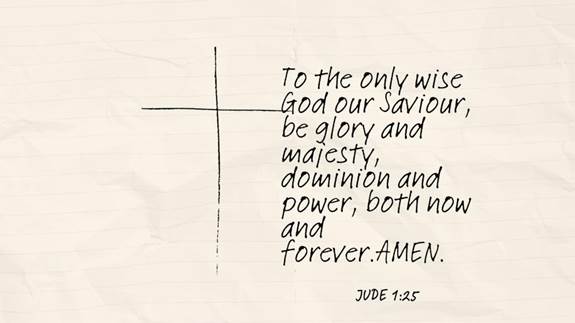 To the only wise
God our Saviour,
be glory and
majesty,
dominion and
power, both now
and
forever.AMEN.
JUDE 1:25